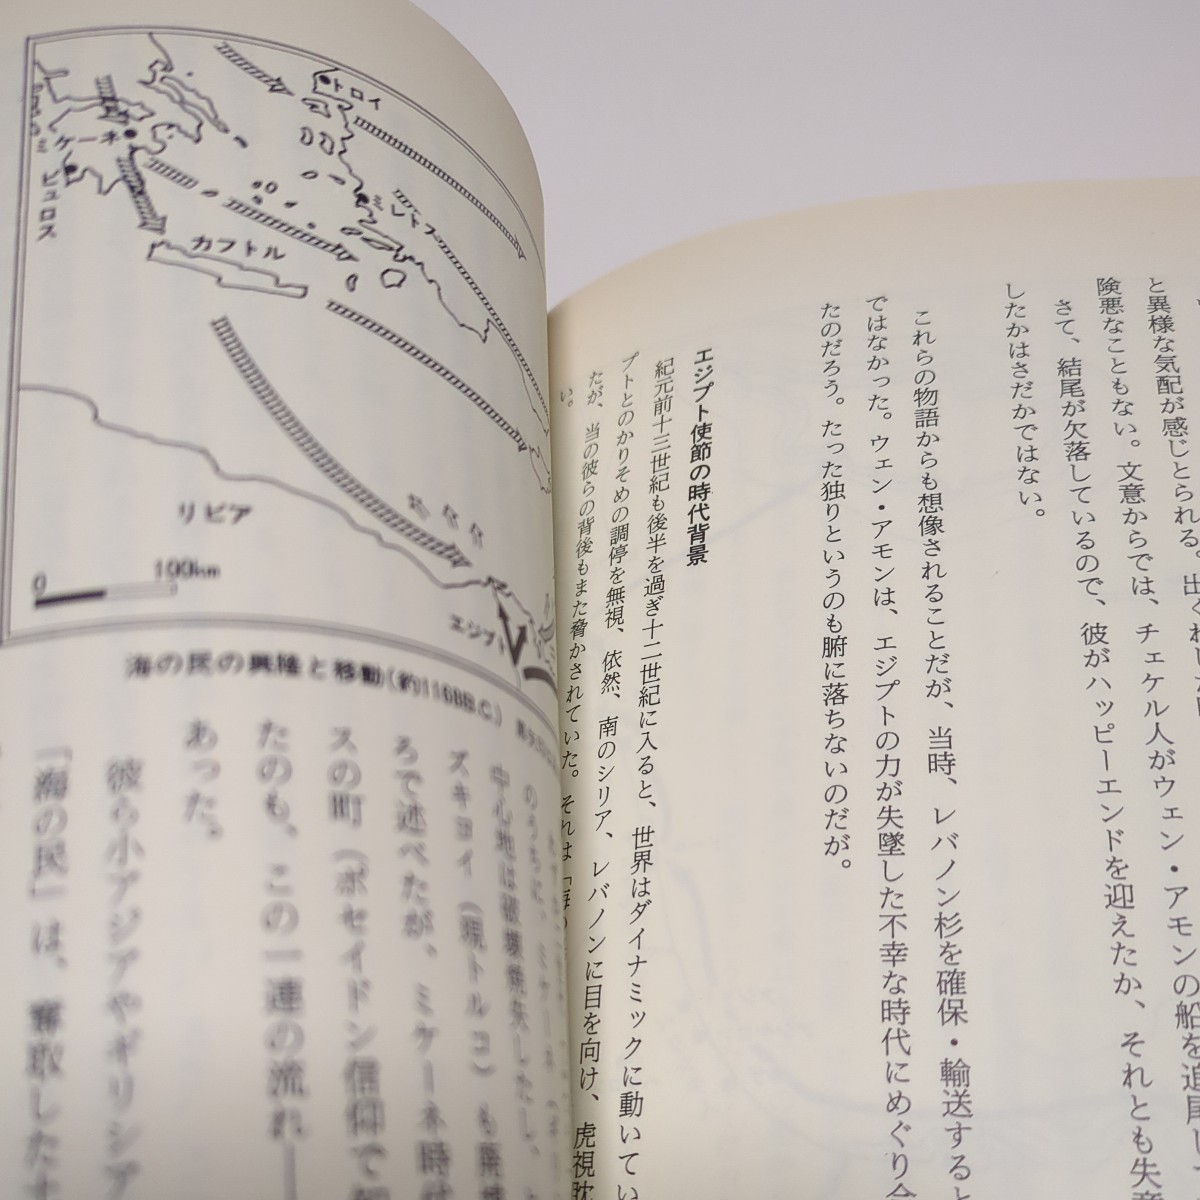 と異様な気配が感じとられる。出くわした
険悪なこともない。文意からでは、チェケル人がウェン・アモンの船を追尾し
さて、結尾が欠落しているので、彼がハッピーエンドを迎えたか、それとも失意
したかはさだかではない。
これらの物語からも想像されることだが、当時、レバノン杉を確保・輸送すると
ではなかった。ウェン・アモンは、エジプトの力が失墜した不幸な時代にめぐり合
たのだろう。たった独りというのも腑に落ちないのだが。
エジプト使節の時代背景
紀元前十三世紀も後半を過ぎ十二世紀に入ると、世界はダイナミックに動いてい
プトとのかりそめの調停を無視、依然、南のシリア、レバノンに目を向け、虎視眈
たが、当の彼らの背後もまた脅かされていた。それは「海の
い。
トロイ
ミケーネ
ピュロス
ミレトス
カフトル
リビア
0 100km
エジプト
海の民の興隆と移動(約1168B.C.)
中心地は破壊焼失したし、
ズキヨイ(現トルコ)も廃墟
ろで述べたが、ミケーネ時代
スの町(ポセイドン信仰で知
たのも、この一連の流れ──
あった。
彼ら小アジアやギリシア
「海の民」は、奪取したナ